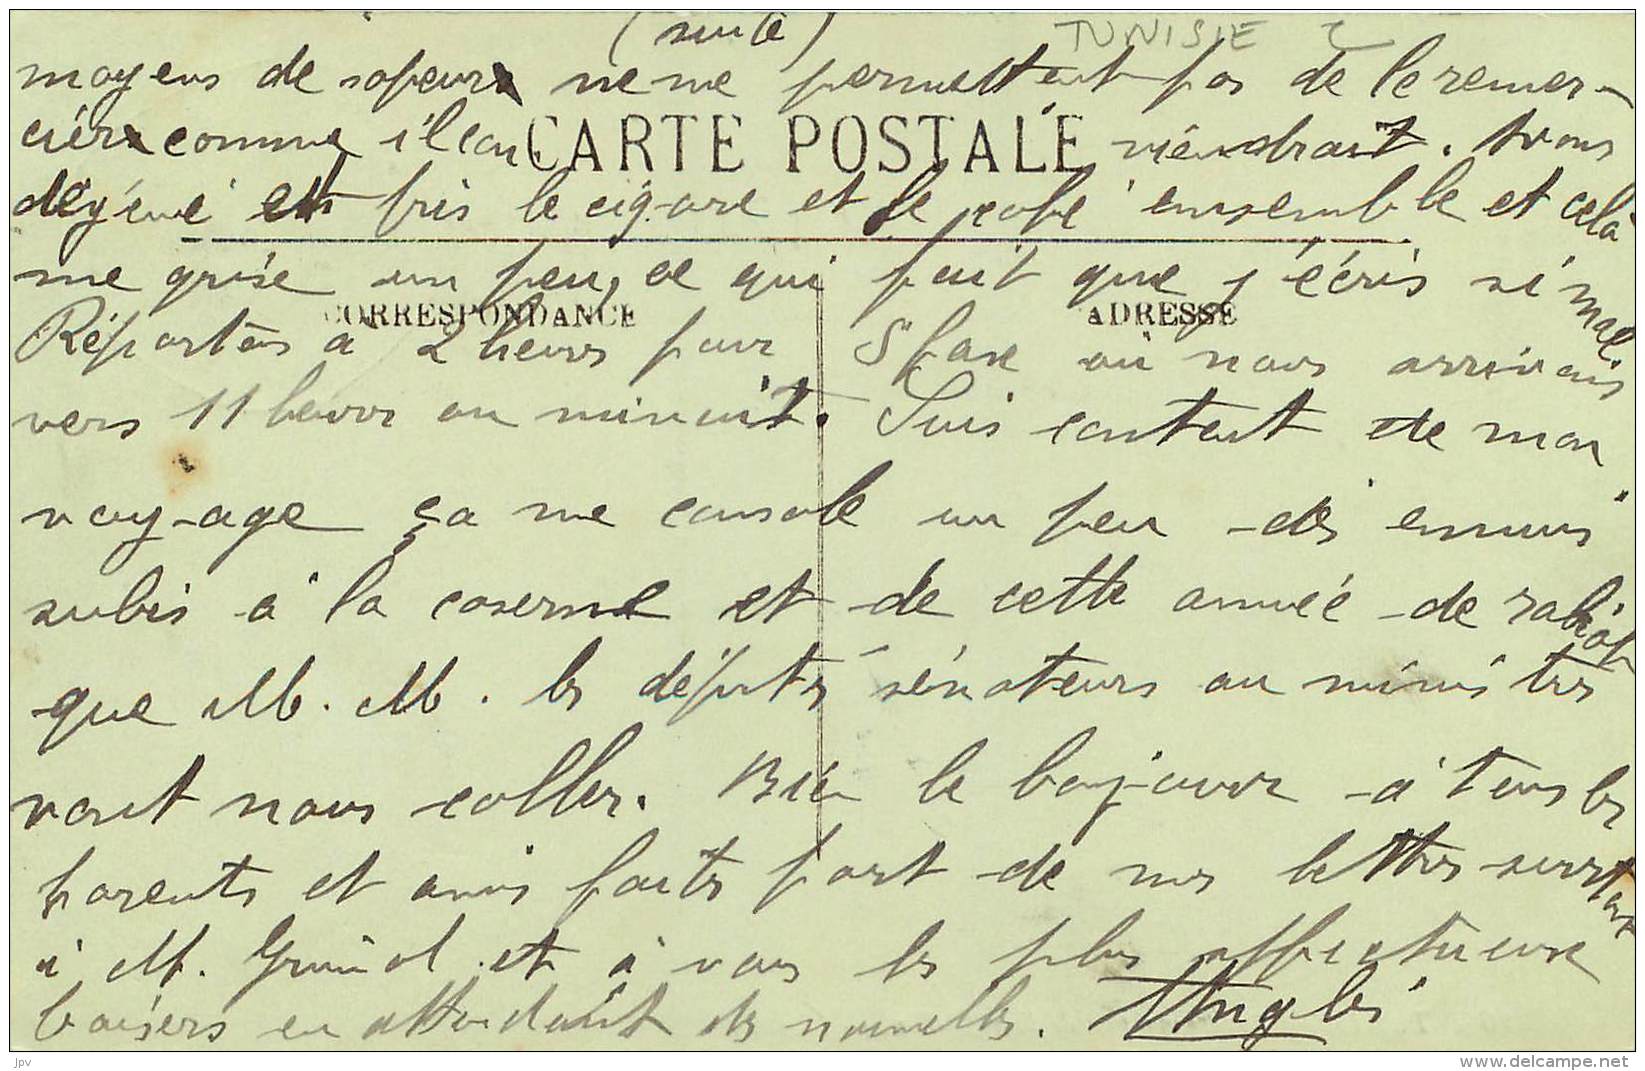 (suite)
TUNISIE ?
moyens de sapeur ne me permettent pas de le remer-
cier comme il con CARTE POSTALE viendrait. Avons
dégéuné et pris le cigare et le café ensemble et cela
me grise un peu, ce qui fait que j'écris si mal.
CORRESPONDANCE ADRESSE
Répartons à 2 heures pour Sfax où nous arrivons
vers 11 heures ou minuit. Suis content de mon
voyage ça me console un peu des ennuis
subis à la caserne et de cette année de rabiot
que M. M. les députés sénateurs ou ministres
vont nous coller. Bien le bonjour à tous les
parents et amis faites part de mes lettres surtout
à M. et à vous les plus affectueux
baisers en attendant des nouvelles.
jpv
www.delcampe.net